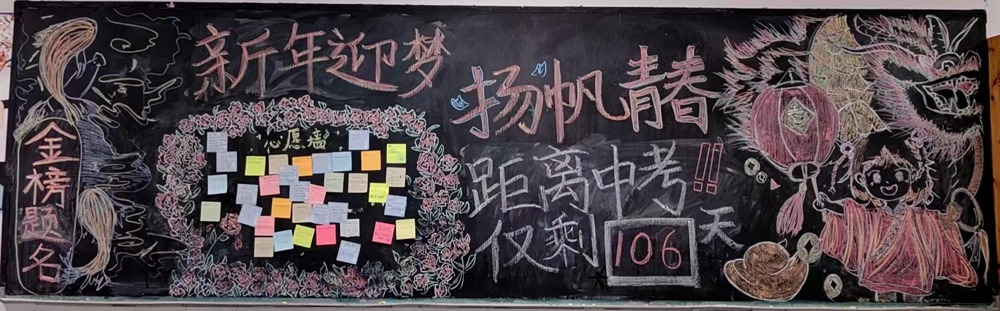 金榜题名
新年迎梦
心愿墙
扬帆青春
距离中考!!
仅剩106天